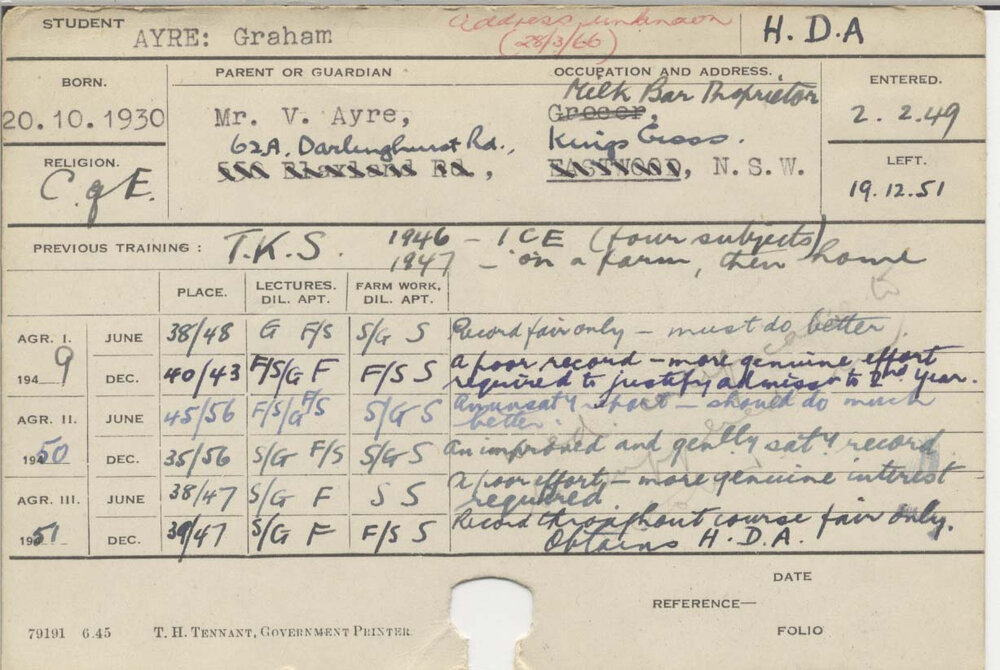 STUDENT AYRE: Graham
address unknown
(28/3/66)
H.D.A
BORN.
20.10.1930
RELIGION.
C. of E.
PARENT OR GUARDIAN
Mr. V. Ayre,
62A. Darlinghurst Rd.,
Blaxland Rd,
OCCUPATION AND ADDRESS.
Milk Bar Proprietor
Grocer,
Kings Cross.
EASTWOOD, N.S.W.
ENTERED.
2.2.49
LEFT.
19.12.51
PREVIOUS TRAINING: T.K.S. 1946 - ICE (four subjects)
1947 - on a farm, then home
PLACE. LECTURES. DIL. APT. FARM WORK, DIL. APT.
AGR. I. JUNE 38/48 G F/S S/G S Record fair only - must do better
1949 DEC. 40/43 F/S/G F F/S S A poor record - more genuine effort
required to justify admiss. to 2nd year.
AGR. II. JUNE 45/56 F/S/G F/S S/G S An unsaty effort - should do much
better.
1950 DEC. 35/56 S/G F/S S/G S An improved and genlly saty record
AGR. III. JUNE 38/47 S/G F S S A poor effort - more genuine interest
required
1951 DEC. 39/47 S/G F F/S S Record throughout course fair only.
Obtains H.D.A.
DATE
REFERENCE—
FOLIO
79191 6.45 T. H. TENNANT, GOVERNMENT PRINTER.